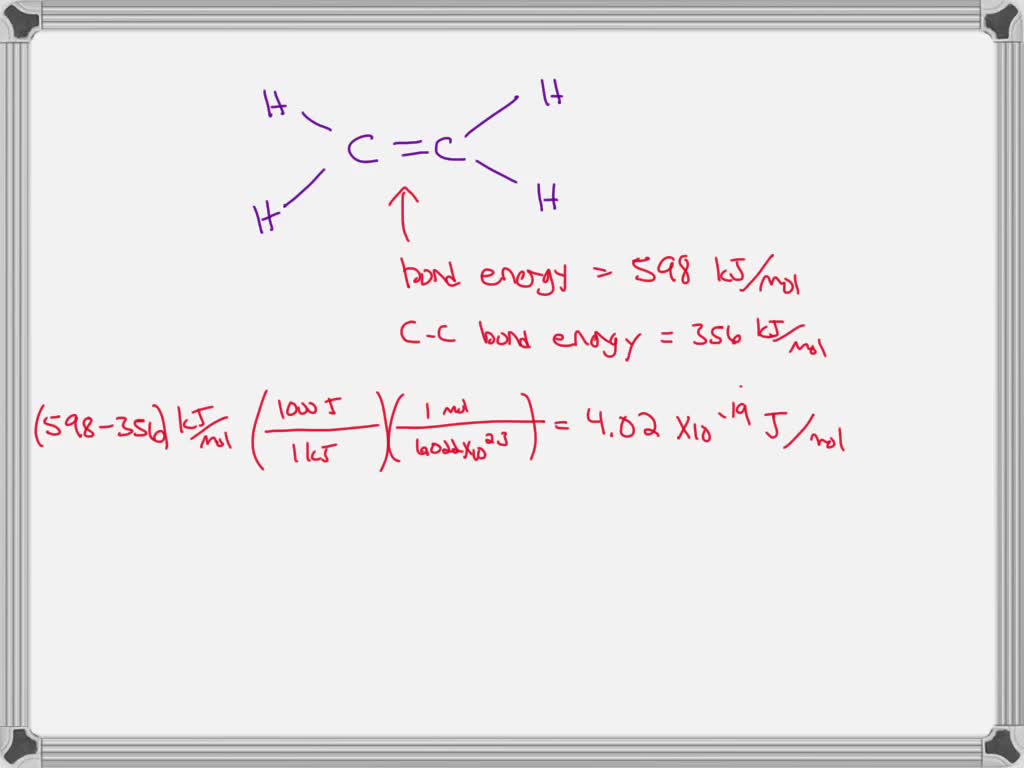 H H
C = C
H H
bond energy = 598 kJ/mol
C-C bond energy = 356 kJ/mol
(598-356) kJ/mol (1000 J / 1 kJ)(1 mol / 6.022x10^23) = 4.02 x10^-19 J/mol